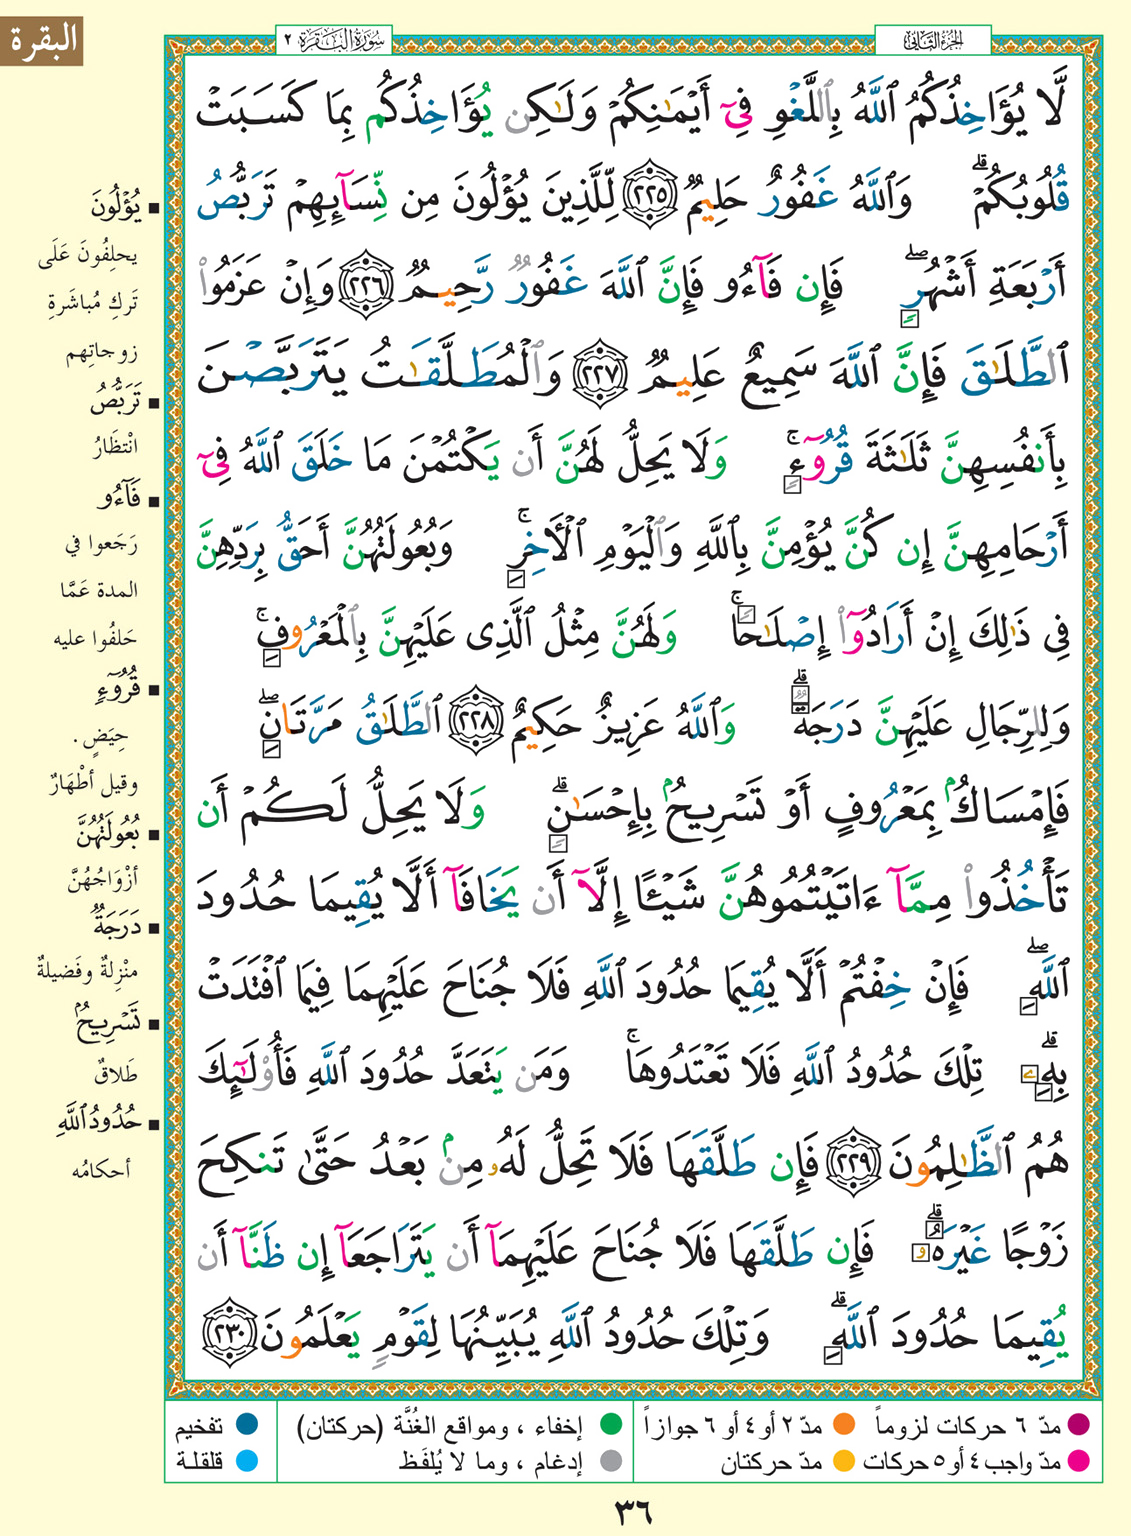 البقرة
سُورَةُ البَقَرَة ٢
الجزءُ الثَّانِي
لَّا يُؤَاخِذُكُمُ ٱللَّهُ بِٱللَّغْوِ فِىٓ أَيْمَـٰنِكُمْ وَلَـٰكِن يُؤَاخِذُكُم بِمَا كَسَبَتْ
قُلُوبُكُمْ ۗ وَٱللَّهُ غَفُورٌ حَلِيمٌ ٢٢٥ لِّلَّذِينَ يُؤْلُونَ مِن نِّسَآئِهِمْ تَرَبُّصُ
أَرْبَعَةِ أَشْهُرٍ ۖ فَإِن فَآءُو فَإِنَّ ٱللَّهَ غَفُورٌ رَّحِيمٌ ٢٢٦ وَإِنْ عَزَمُوا۟
ٱلطَّلَـٰقَ فَإِنَّ ٱللَّهَ سَمِيعٌ عَلِيمٌ ٢٢٧ وَٱلْمُطَلَّقَـٰتُ يَتَرَبَّصْنَ
بِأَنفُسِهِنَّ ثَلَـٰثَةَ قُرُوٓءٍ ۚ وَلَا يَحِلُّ لَهُنَّ أَن يَكْتُمْنَ مَا خَلَقَ ٱللَّهُ فِىٓ
أَرْحَامِهِنَّ إِن كُنَّ يُؤْمِنَّ بِٱللَّهِ وَٱلْيَوْمِ ٱلْـَٔاخِرِ ۚ وَبُعُولَتُهُنَّ أَحَقُّ بِرَدِّهِنَّ
فِى ذَٰلِكَ إِنْ أَرَادُوٓا۟ إِصْلَـٰحًا ۚ وَلَهُنَّ مِثْلُ ٱلَّذِى عَلَيْهِنَّ بِٱلْمَعْرُوفِ ۚ
وَلِلرِّجَالِ عَلَيْهِنَّ دَرَجَةٌ ۗ وَٱللَّهُ عَزِيزٌ حَكِيمٌ ٢٢٨ ٱلطَّلَـٰقُ مَرَّتَانِ ۖ
فَإِمْسَاكٌۢ بِمَعْرُوفٍ أَوْ تَسْرِيحٌۢ بِإِحْسَـٰنٍ ۗ وَلَا يَحِلُّ لَكُمْ أَن
تَأْخُذُوا۟ مِمَّآ ءَاتَيْتُمُوهُنَّ شَيْـًٔا إِلَّآ أَن يَخَافَآ أَلَّا يُقِيمَا حُدُودَ
ٱللَّهِ ۖ فَإِنْ خِفْتُمْ أَلَّا يُقِيمَا حُدُودَ ٱللَّهِ فَلَا جُنَاحَ عَلَيْهِمَا فِيمَا ٱفْتَدَتْ
بِهِۦ ۗ تِلْكَ حُدُودُ ٱللَّهِ فَلَا تَعْتَدُوهَا ۚ وَمَن يَتَعَدَّ حُدُودَ ٱللَّهِ فَأُو۟لَـٰٓئِكَ
هُمُ ٱلظَّـٰلِمُونَ ٢٢٩ فَإِن طَلَّقَهَا فَلَا تَحِلُّ لَهُۥ مِنۢ بَعْدُ حَتَّىٰ تَنكِحَ
زَوْجًا غَيْرَهُۥ ۗ فَإِن طَلَّقَهَا فَلَا جُنَاحَ عَلَيْهِمَآ أَن يَتَرَاجَعَآ إِن ظَنَّآ أَن
يُقِيمَا حُدُودَ ٱللَّهِ ۗ وَتِلْكَ حُدُودُ ٱللَّهِ يُبَيِّنُهَا لِقَوْمٍ يَعْلَمُونَ ٢٣٠
■ يُؤْلُونَ
يحلِفُونَ عَلَى
تَركِ مُباشَرةِ
زوجاتِهم
■ تَرَبُّصُ
انْتظَارُ
■ فَآءُو
رَجَعوا في
المدة عَمَّا
حَلفُوا عليه
■ قُرُوٓءٍ
حِيَضٍ .
وقيل أطْهَارٌ
■ بُعُولَتُهُنَّ
أزْوَاجُهُنَّ
■ دَرَجَةٌ
منْزِلةٌ وفَضيلةٌ
■ تَسْرِيحٌۢ
طَلاقٌ
■ حُدُودُ ٱللَّهِ
أحكامُه
مدّ ٦ حركات لزوماً
مدّ ٢ أو ٤ أو ٦ جوازاً
إخفاء ، ومواقع الغُنَّة (حركتان)
تفخيم
مدّ واجب ٤ أو ٥ حركات
مدّ حركتان
إدغام ، وما لا يُلفَظ
قلقلة
٣٦